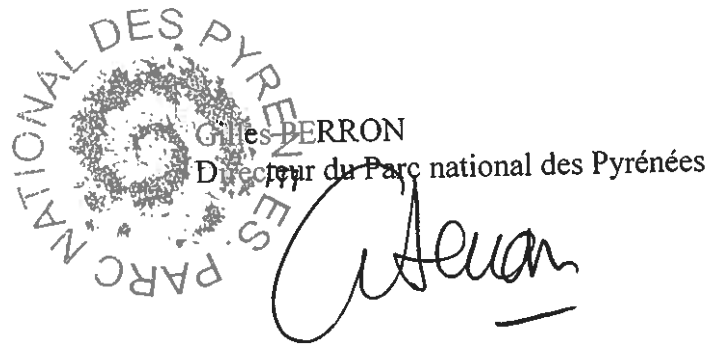 PARC NATIONAL DES PYRENEES
Gilles PERRON
Directeur du Parc national des Pyrénées